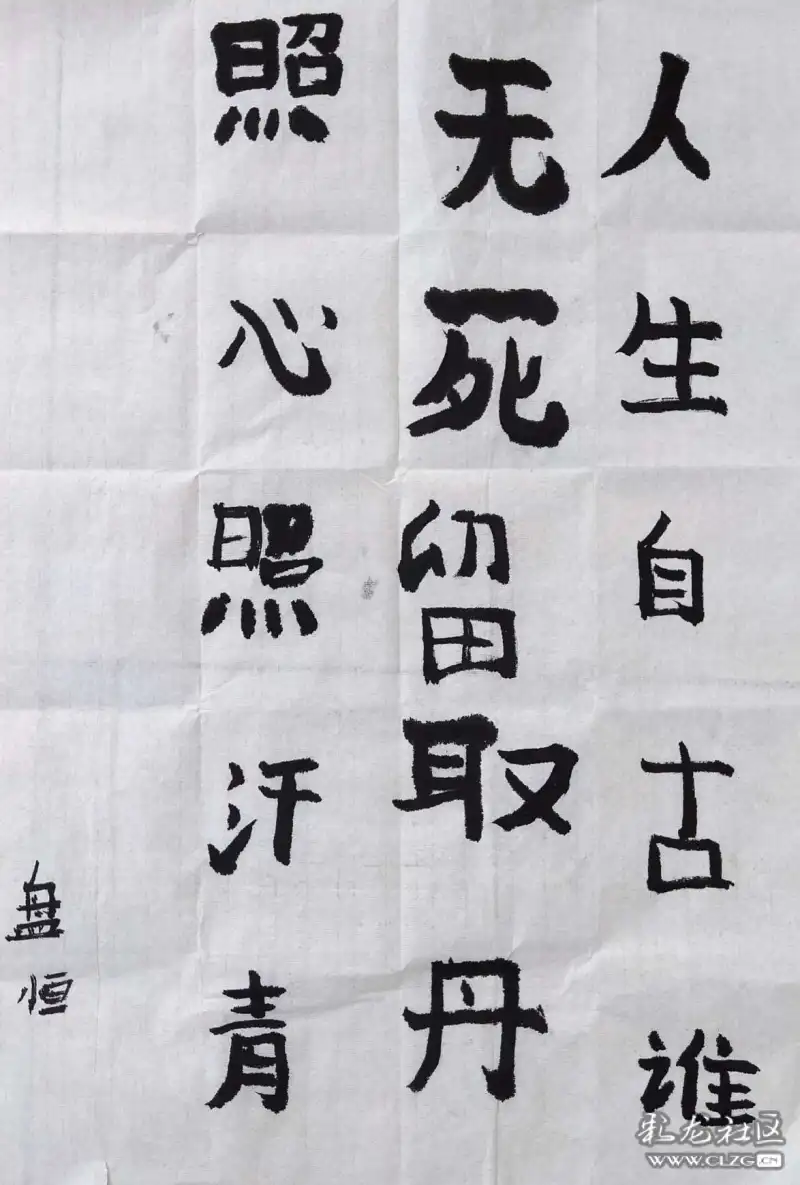 人生自古谁
无死留取丹
照心照汗青
盘恒
彩龙社区
WWW.CLZG.CN